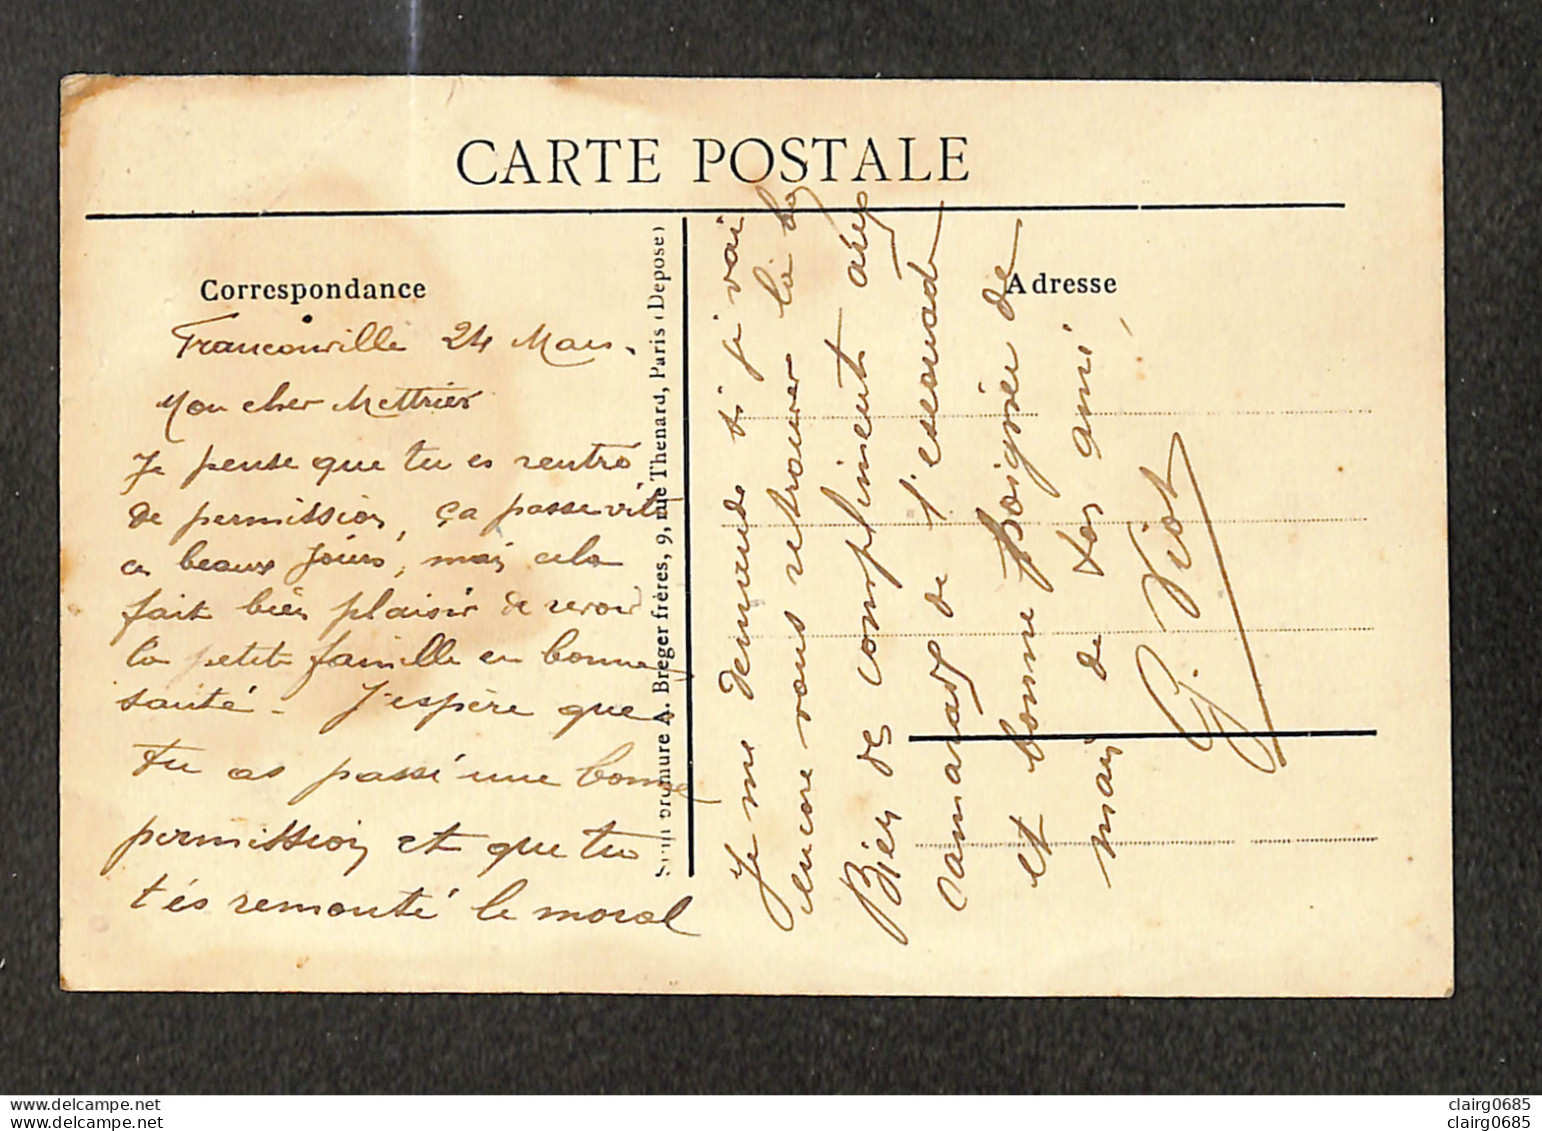 CARTE POSTALE
Correspondance
Franconville 24 Mars.
Mon cher Mettrier
Je pense que tu es rentré
de permission, ça passe vite
ces beaux jours, mais cela
fait bien plaisir de revoir
la petite famille en bonne
santé - J'espère que
tu as passé une bonne
permission et que tu
t'és remonté le moral
A. Breger frères, 9, rue Thenard, Paris (Déposé)
Adresse
Je me demande si je vai
encore vous retrouver là bas
Bien des compliments aux
camarades de l'escouade
et bonne poignée de
main de ton ami
G. Viot
delcampe.net
clairg0685
delcampe.net
clairg0685